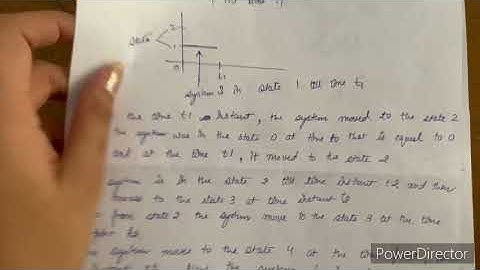 2
State
1
0
t1
system is in state 1 till time t1
the time t1 instant, the system moved to the state 2
the system was in the state 0 at time to that is equal to 0
and at the time t1, it moved to the state 2
system is in the state 2 till time instant t2 and then
to the state 3 at time instant
from state 2 the system move to the state 3 at the time
system move to the state 4 at the
PowerDirector